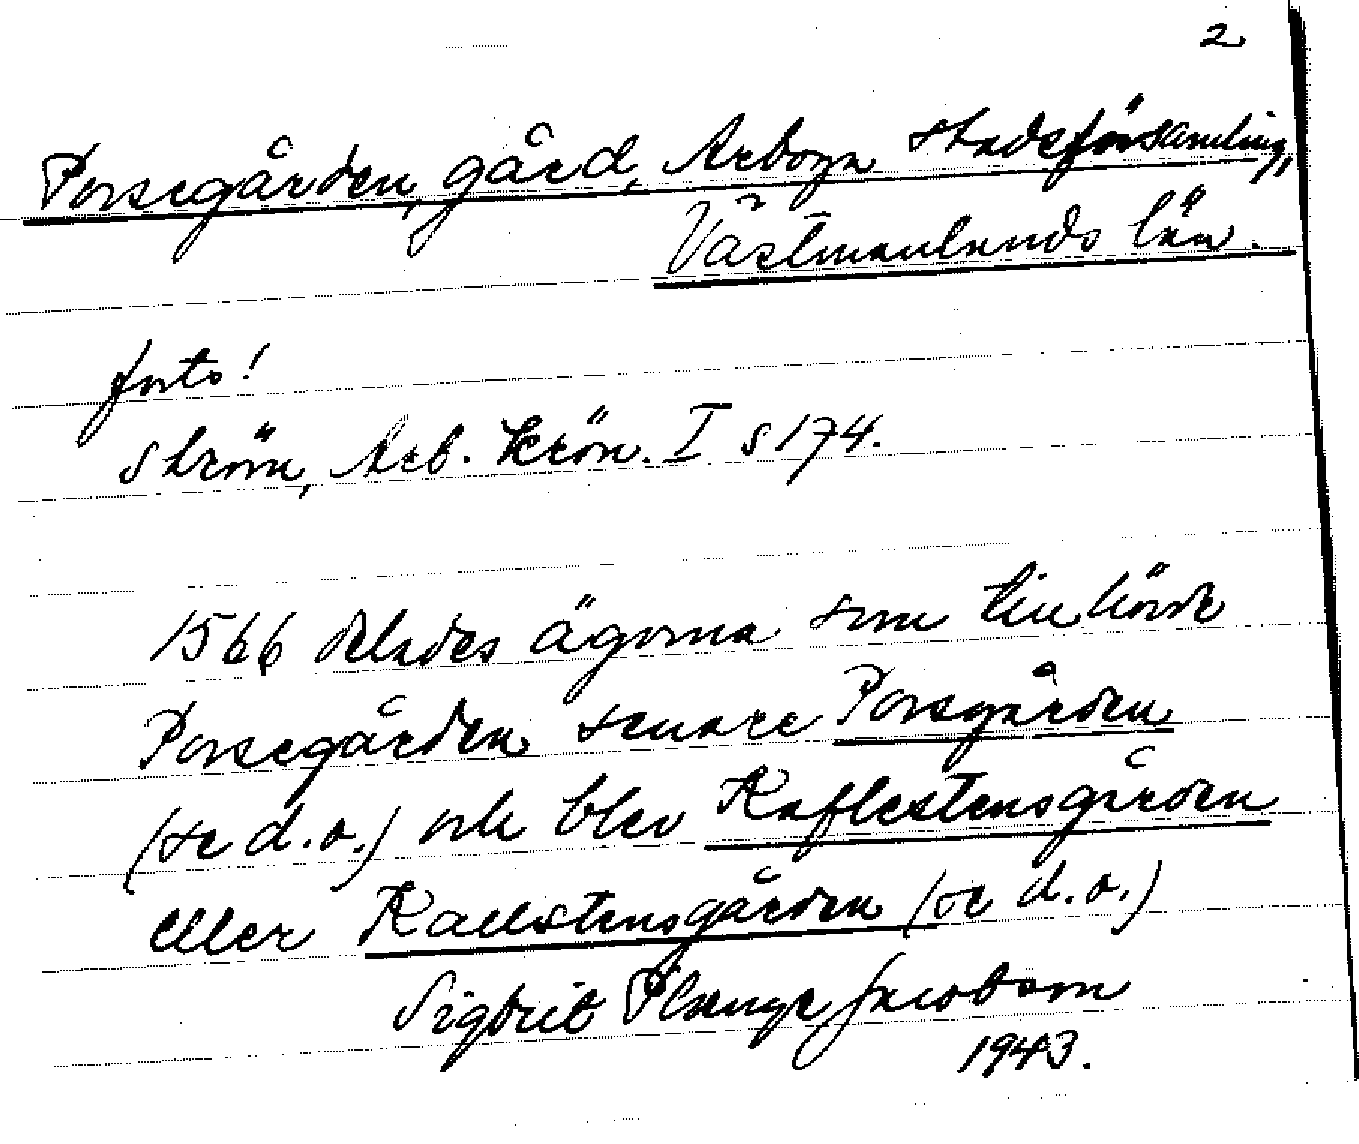 2
Porsegården, gård, Arboga stadsförsamling,
Västmanlands län.
foto!
Ström, Arb. Krön. I s 174.
1566 delades ägorna som tillhörde
Porsegården senare Porsgården
(se d.o.) och blev Kaflestensgården
eller Kallstensgården (se d.o.)
Sigbrit Plænge Jacobson
1943.